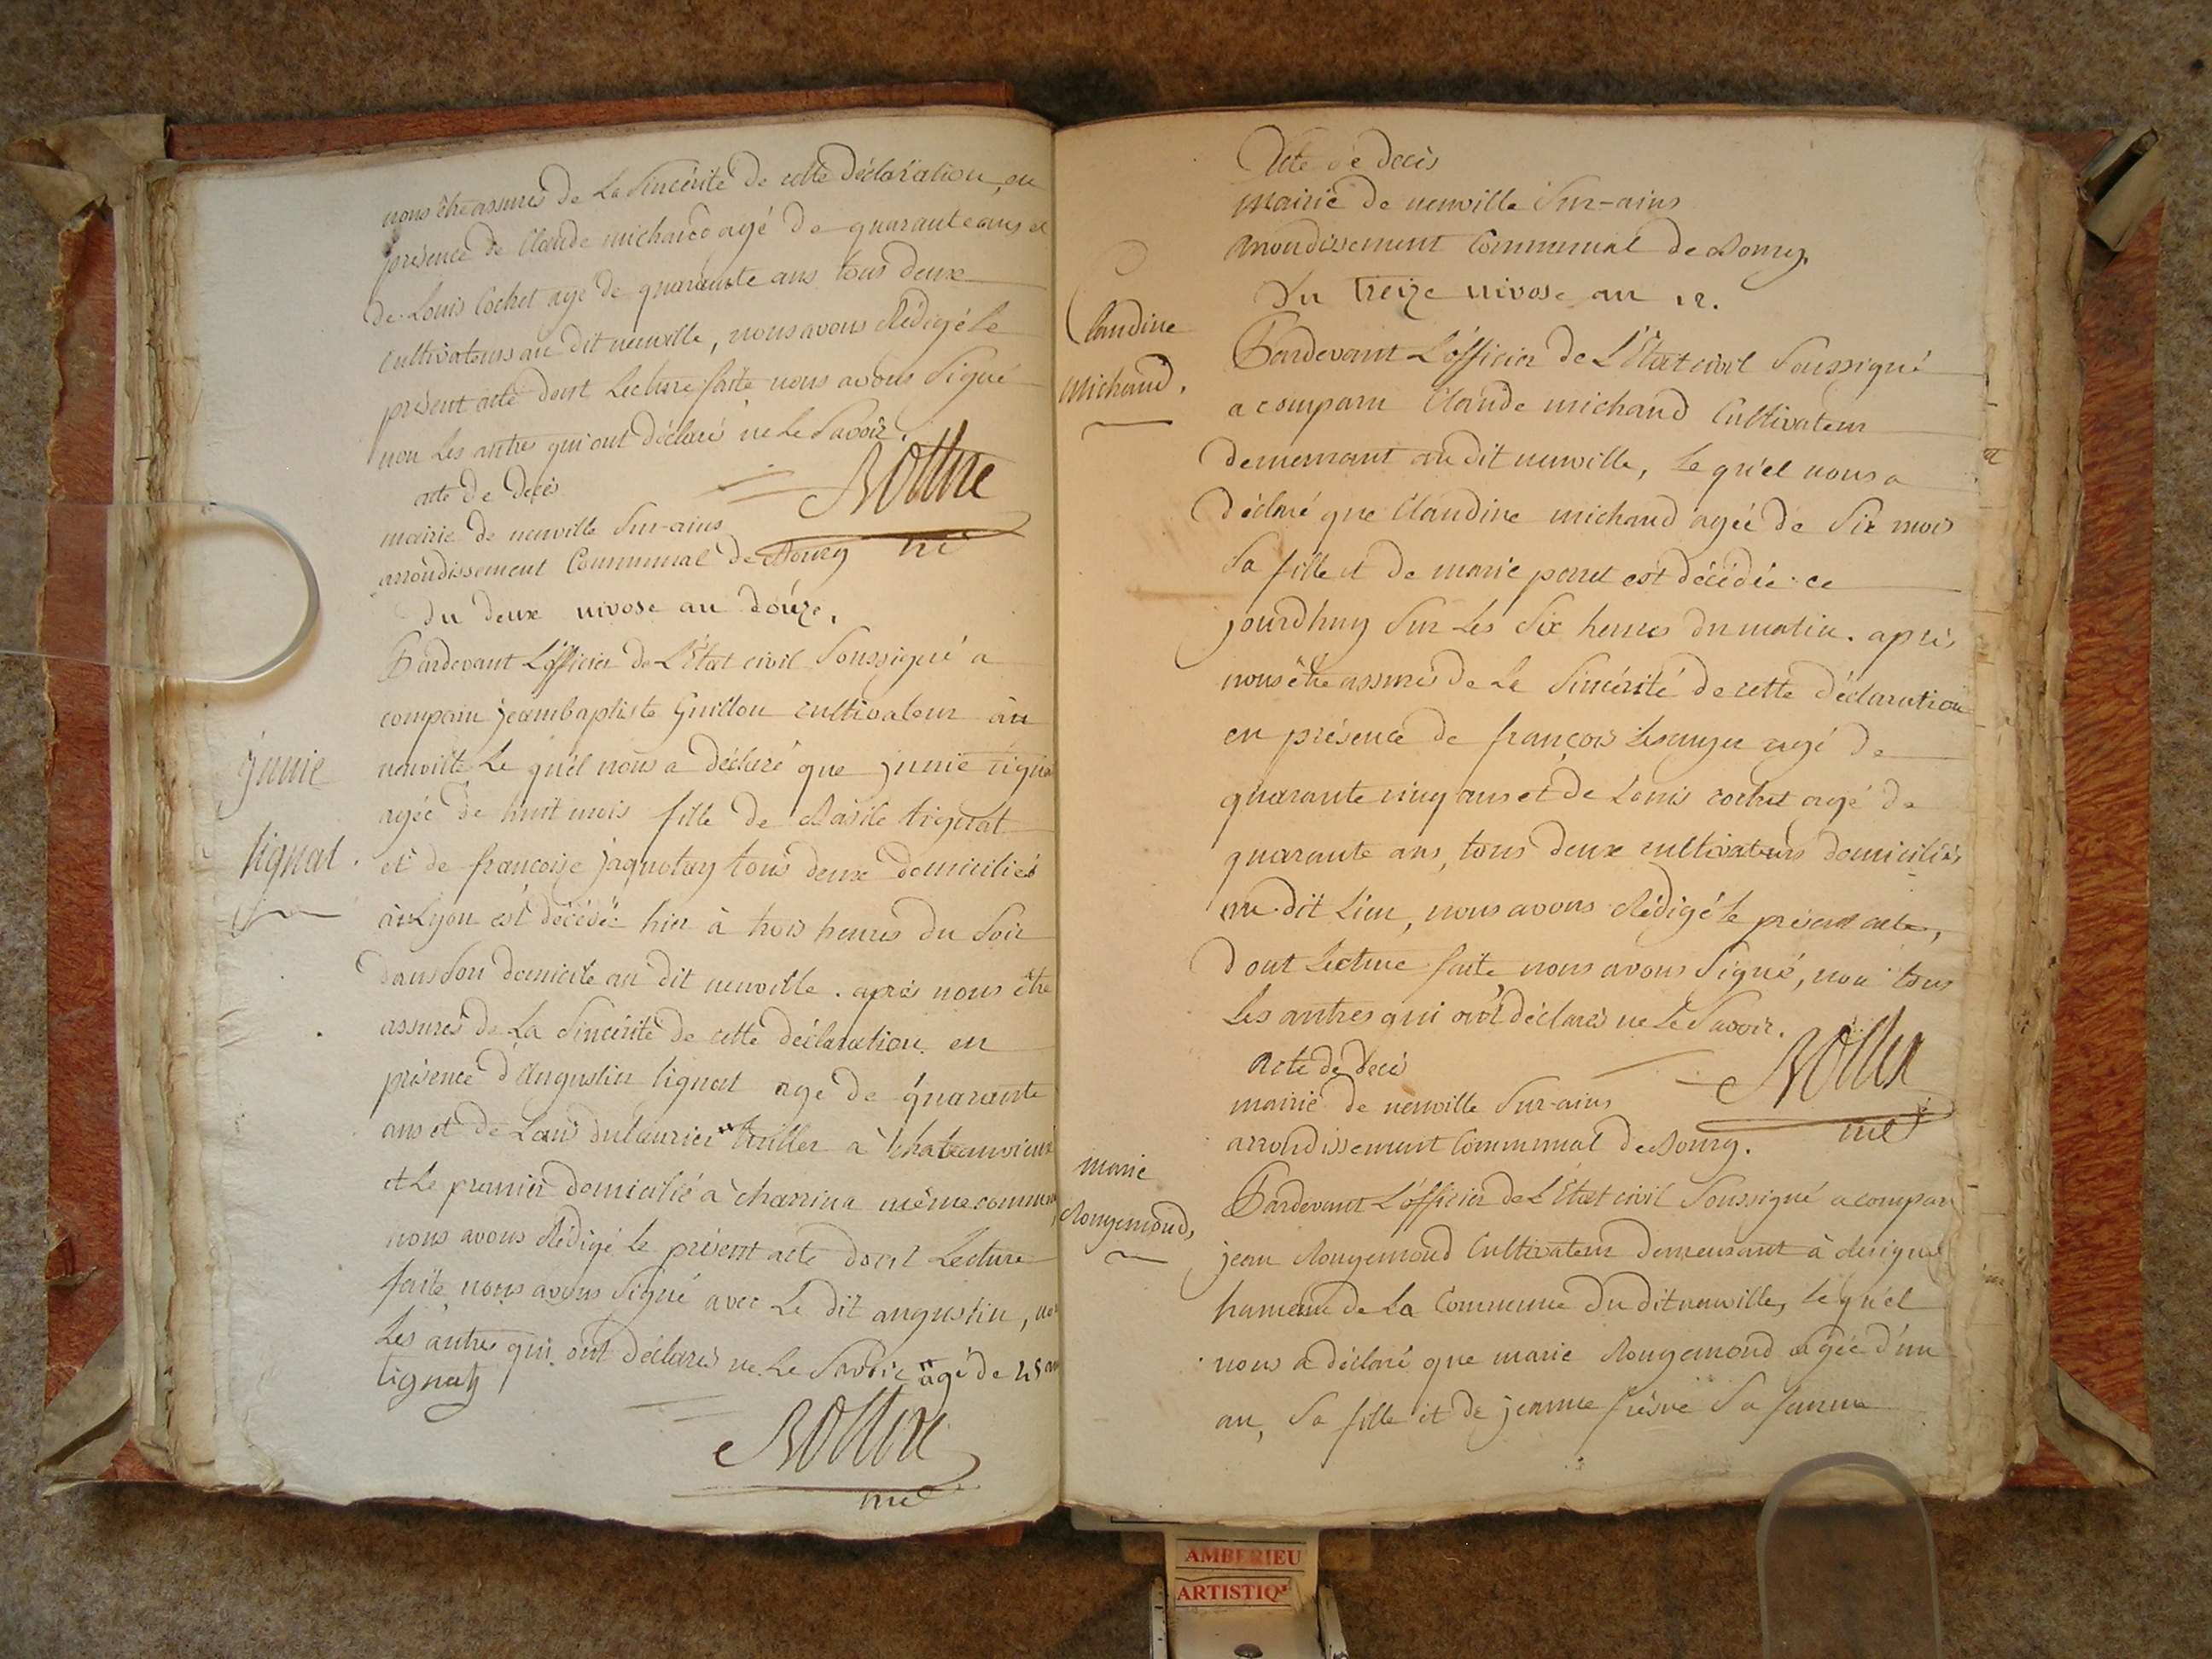 nous être assurés de La Sincérité de cette déclaration, en
présence de Claude michaud agé de quarante ans et
de Louis Cochet agé de quarante ans tous deux
Cultivateurs au dit neuville, nous avons Rédigé Le
présent acte dont Lecture faite nous avons Signé
non Les autres qui ont déclaré ne Le Savoir.
acte de decès
mairie de neuville Sur-ains
arrondissement Communal de Bourg
du deux nivose an douze.
Pardevant L'officier de L'Etat civil Soussigné a
comparu jeambaptiste Guillon cultivateur au
neuville Le quel nous a déclaré que junie tignat
agée de huit mois fille de Basile tignat
et de françoise jaquetay tous deux domiciliés
à Lyon est décédée hier à trois heures du Soir
dans Son domicile au dit neuville. après nous être
assurés de La Sincérité de cette déclaration en
présence d'Augustin tignat agé de quarante
ans et de Louis à chateauvieux
et Le premier domicilié à même commune
nous avons Rédigé Le présent acte dont Lecture
faite nous avons Signé avec Le dit augustin, non
Les autres qui ont déclarés ne Le Savoir agé de 45 ans
tignat
junie
tignat.
Acte de decès
mairie de neuville Sur-ains
arrondissement Communal de Bourg.
Du treize nivose an 12.
Claudine
michaud.
Pardevant L'officier de L'Etat civil Soussigné
a comparu Claude michaud Cultivateur
demeurant au dit neuville, Le quel nous a
déclaré que Claudine michaud agée de Six mois
Sa fille et de marie perret est décédée ce
jourdhuy Sur Les Six heures du matin. après
nous être assurés de La Sincérité de cette déclaration
en présence de françois agé de
quarante cinq ans et de Louis cochet agé de
quarante ans, tous deux cultivateurs domiciliés
au dit Lieu, nous avons Rédigé le présent acte,
dont Lecture faite nous avons Signé, non tous
Les autres qui ont déclarés ne Le Savoir.
Acte de decès
mairie de neuville Sur-ains
arrondissement Communal de Bourg.
marie
Rougemond,
Pardevant L'officier de L'Etat civil Soussigné a comparu
jean Rougemond Cultivateur demeurant à
hameau de La Commune du dit neuville, Le quel
nous a déclaré que marie Rougemond agée d'un
an, Sa fille et de jeanne Sa femme
AMBERIEU
ARTISTIQ